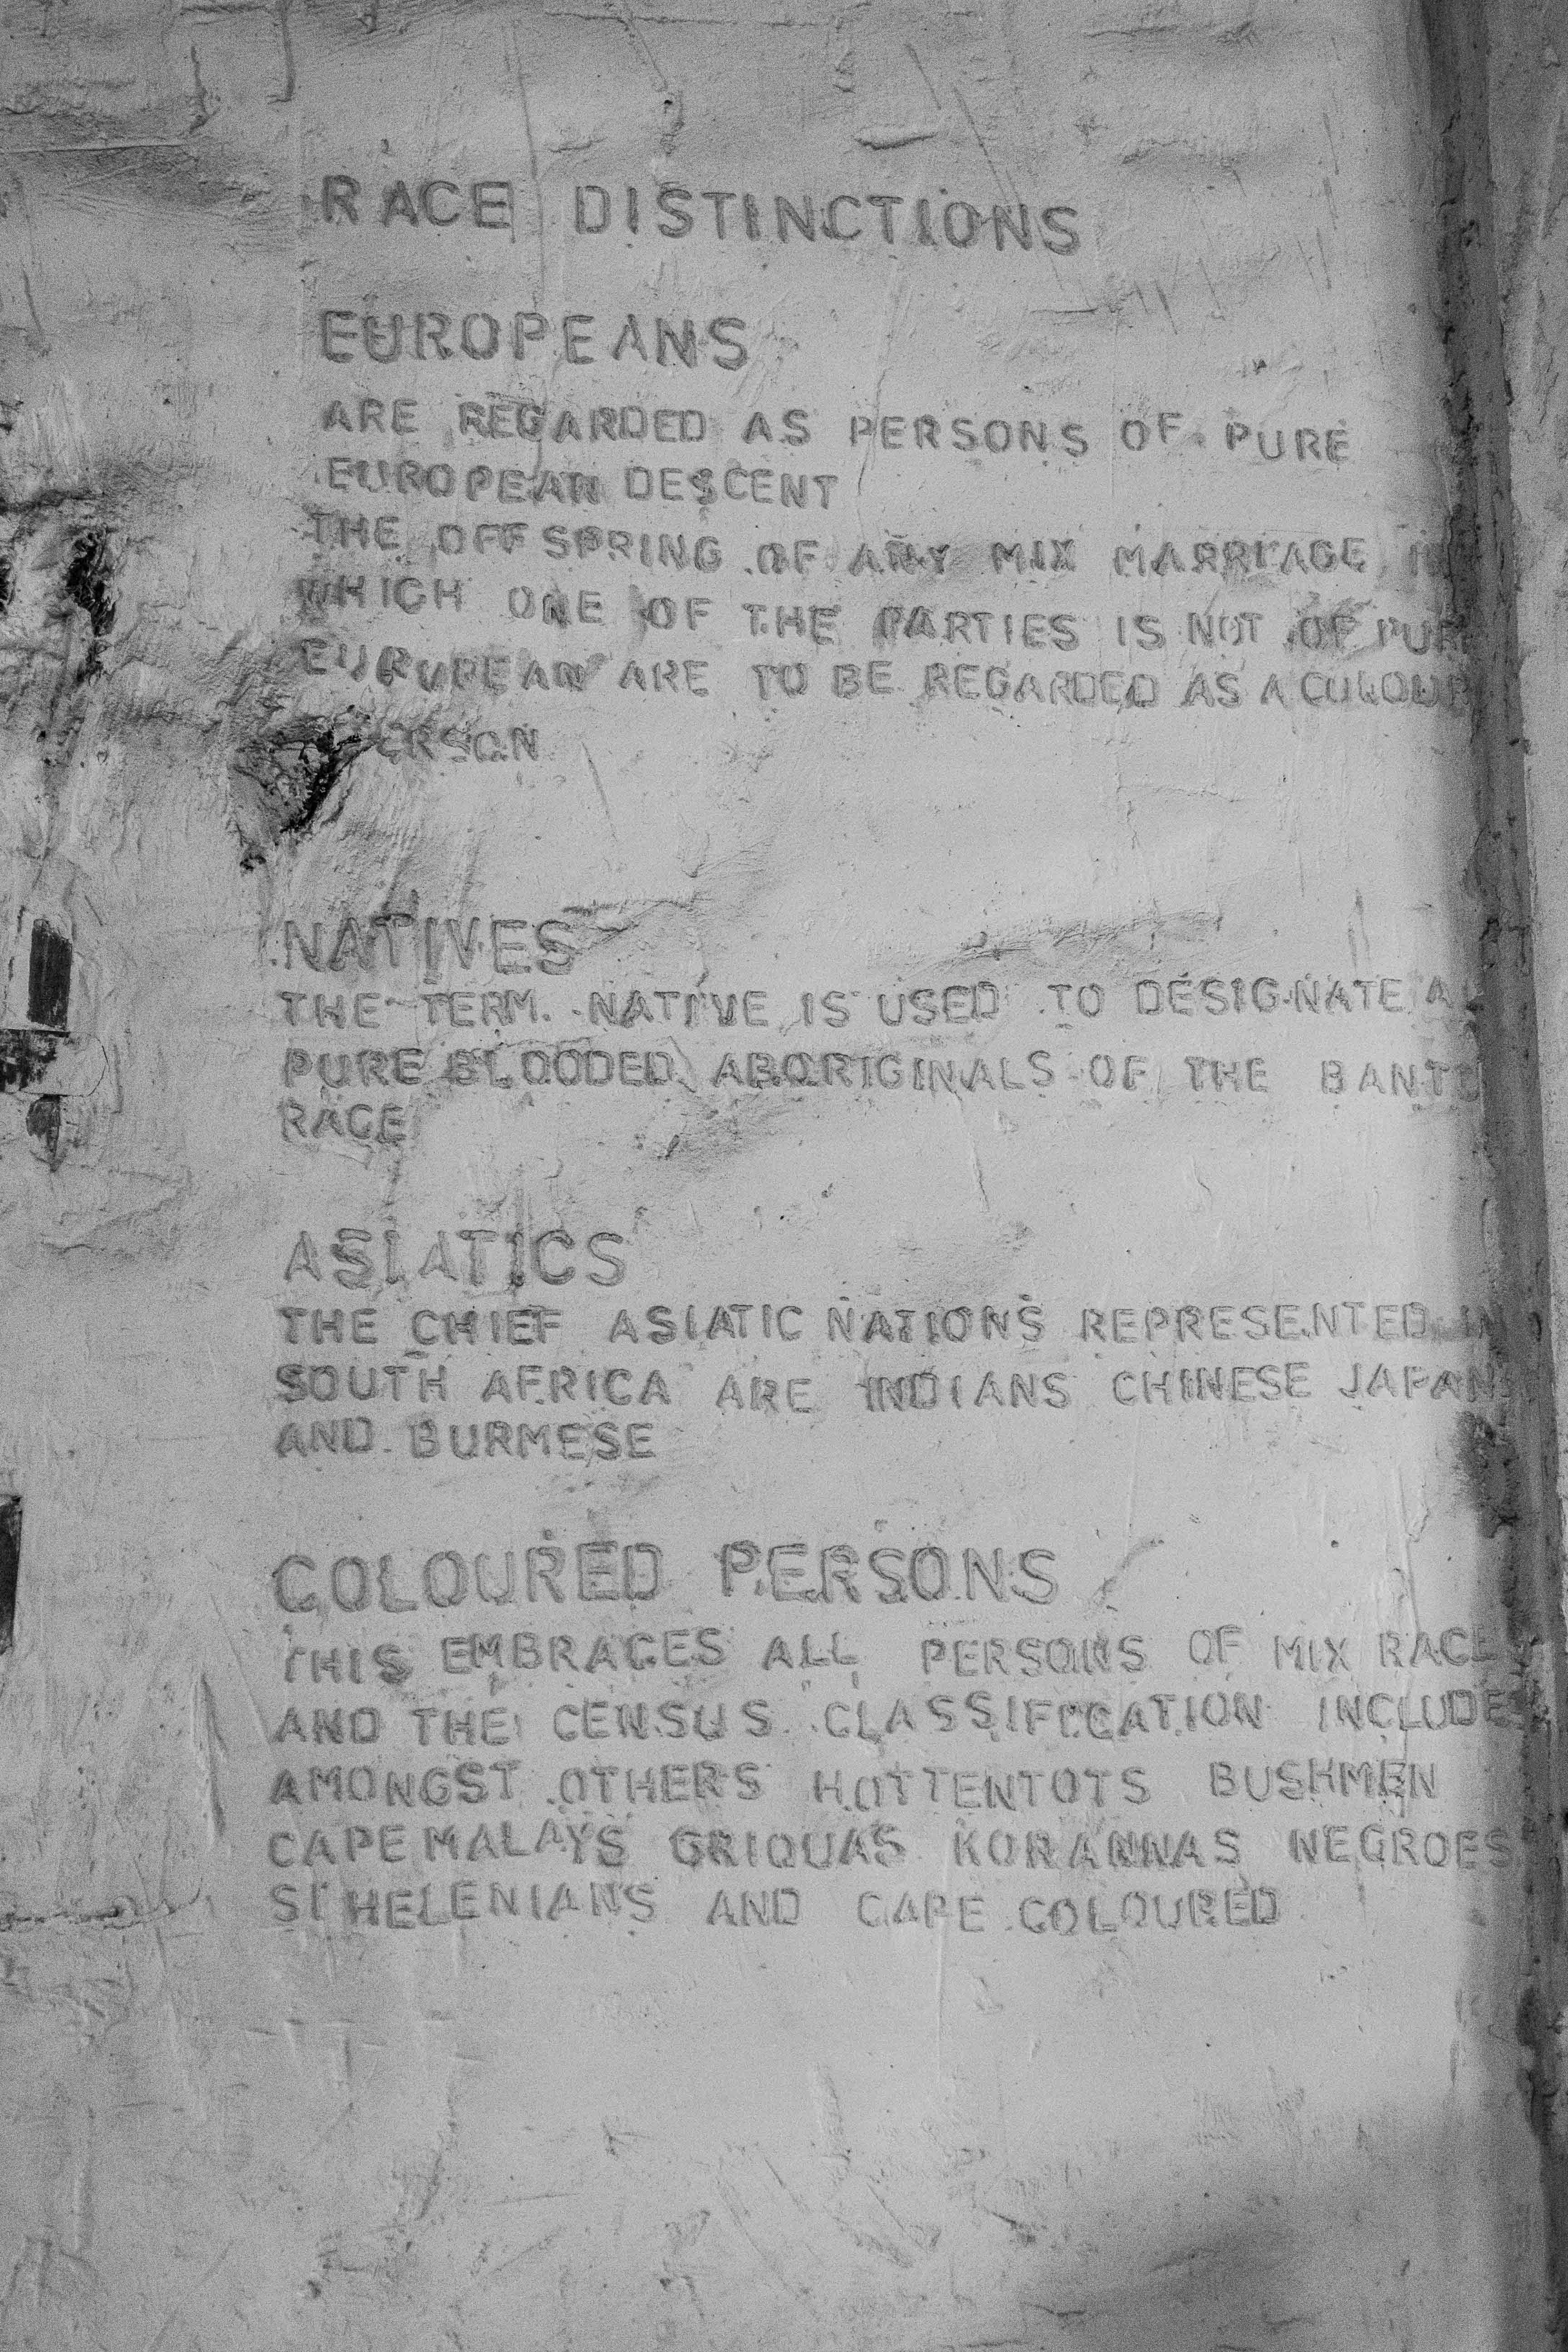 RACE DISTINCTIONS
EUROPEANS
ARE REGARDED AS PERSONS OF PURE
EUROPEAN DESCENT
THE OFFSPRING OF ANY MIX MARRIAGE
WHICH ONE OF THE PARTIES IS NOT OF PUR
EUROPEAN ARE TO BE REGARDED AS A COLOUR
ERSON
NATIVES
THE TERM NATIVE IS USED TO DESIGNATE AL
PURE BLOODED ABORIGINALS OF THE BANTU
RACE
ASIATICS
THE CHIEF ASIATIC NATIONS REPRESENTED IN
SOUTH AFRICA ARE INDIANS CHINESE JAPAN
AND BURMESE
COLOURED PERSONS
THIS EMBRACES ALL PERSONS OF MIX RACE
AND THE CENSUS CLASSIFICATION INCLUDES
AMONGST OTHERS HOTTENTOTS BUSHMEN
CAPE MALAYS GRIQUAS KORANNAS NEGROES
ST HELENIANS AND CAPE COLOURED